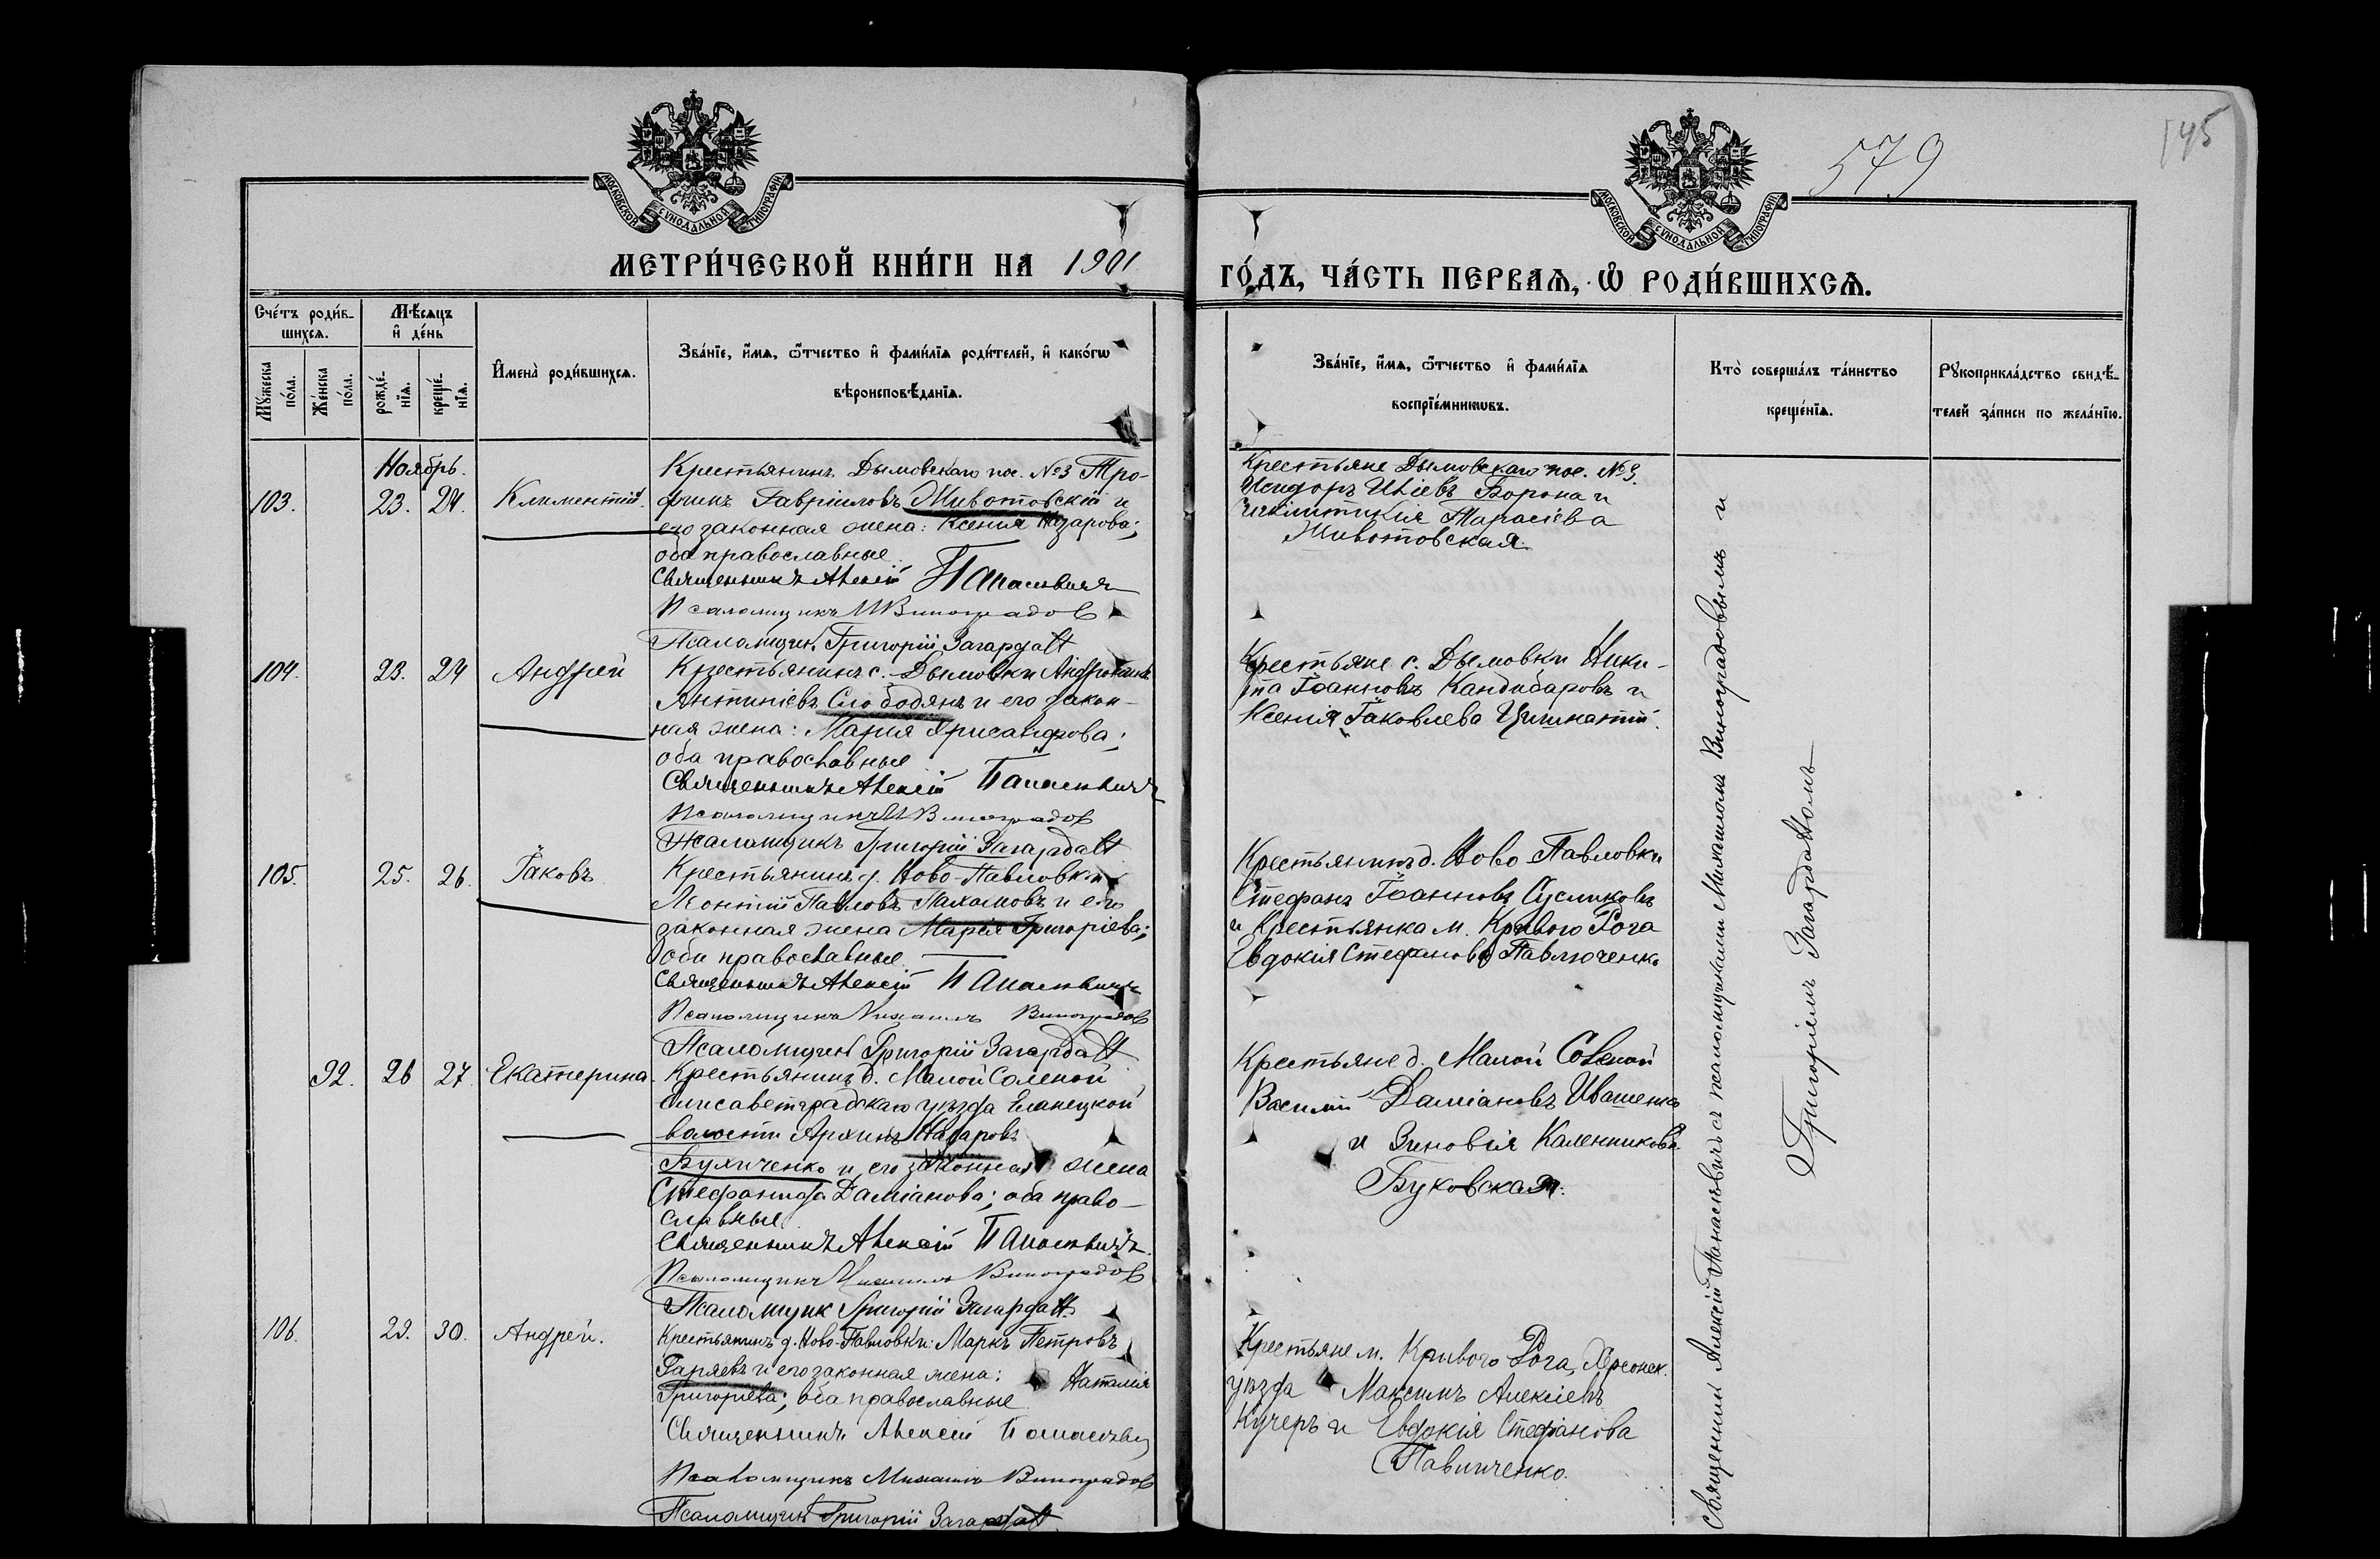 579
145
МОСКОВСКОЙ СѴНОДАЛЬНОЙ ТИПОГРАФІИ
МОСКОВСКОЙ СѴНОДАЛЬНОЙ ТИПОГРАФІИ
МЕТРИ́ЧЕСКОЙ КНИ́ГИ НА 1901
ГО́ДЪ, ЧА́СТЬ ПЕРВАѦ, Ѡ҆ РОДИ́ВШИХСѦ.
Сче́тъ роди́в-
шихсѧ.
Мꙋ́жеска по́ла.
Же́нска по́ла.
Мѣ́сѧцъ
и҆ де́нь
рожде́-
нїѧ.
креще́-
нїѧ.
И҆мена̀ роди́вшихсѧ.
Зва́нїе, и҆́мѧ, ѻ҆́тчество и҆ фами́лїѧ роди́телей, и҆ како́гѡ
вѣроисповѣ́данїѧ.
Зва́нїе, и҆́мѧ, ѻ҆́тчество и҆ фами́лїѧ
воспрїе́мникѡвъ.
Кто̀ соверша́лъ та́инство
креще́нїѧ.
Рꙋкоприкла́дство свидѣ́-
телей за́писи по жела́нїю.
Ноябрь.
103. 23. 24. Климентій.
Крестьянинъ Дымовскаго пос. №3 Тро-
фимъ Гавріиловъ Животовскій и
его законная жена: Ксенія Назарова;
оба православные.
Священникъ Алексій Панасевичъ
Псаломщикъ М Виноградов
Псаломщик Григорій Загардан
Крестьяне Дымовскаго пос. №3.
Исидоръ Иліевъ Борона и
Тарасіева
Животовская.
104. 23. 24 Андрей
Крестьянинъ с. Дымовки
Антиніевъ Слободянъ и его закон-
ная жена: Марія Хрисанфова;
оба православные
Священникъ Алексій Панасевичъ
Псаломщикъ М Виноградов
Псаломщикъ Григорій Загардан
Крестьяне с. Дымовки Ники-
та Іоанновъ Кандибаровъ и
Ксенія Іаковлева
105. 25. 26. Іаковъ
Крестьянинъ д. Ново-Павловки
Леонтій Павловъ Пахамовъ и его
законная жена Марія Григоріева;
оба православные.
Священникъ Алексій Панасевичъ
Псаломщикъ Михаилъ Виноградов
Псаломщик Григорій Загардан
Крестьянинъ д. Ново-Павловки
Стефанъ Іоанновъ Сусликовъ
и Крестьянка м. Кривого Рога
Евдокія Стефанова Павлюченко
92. 26 27. Екатерина.
Крестьянинъ д. Малой Соленой
Елисаветградскаго уѣзда Еланецкой
волости Архипъ Назаровъ
Бухиченко и его законная жена
Стефанида Даміанова; оба право-
славные.
Священникъ Алексій Панасевичъ.
Псаломщикъ Михаилъ Виноградов
Псаломщик Григорій Загардан
Крестьяне д. Малой Соленой
Василій Даміановъ Иващенко
и Зиновія Каленникова
Буковская.
106. 29. 30. Андрей.
Крестьянинъ д. Ново-Павловки: Маркъ Петровъ
Гаряевъ и его законная жена: Наталія
Григорьева; оба православные
Священникъ Алексій Панасевич
Псаломщикъ Михаилъ Виноградов
Псаломщик Григорій Загардан
Крестьяне м. Кривого Рога, Херсонск.
уѣзда Максимъ Алексіевъ
Кучеръ и Евдокія Стефанова
Павличенко.
Священникъ Алексій Панасевичъ съ псаломщиками Михаиломъ Виноградовымъ и
Григоріемъ Загарданомъ